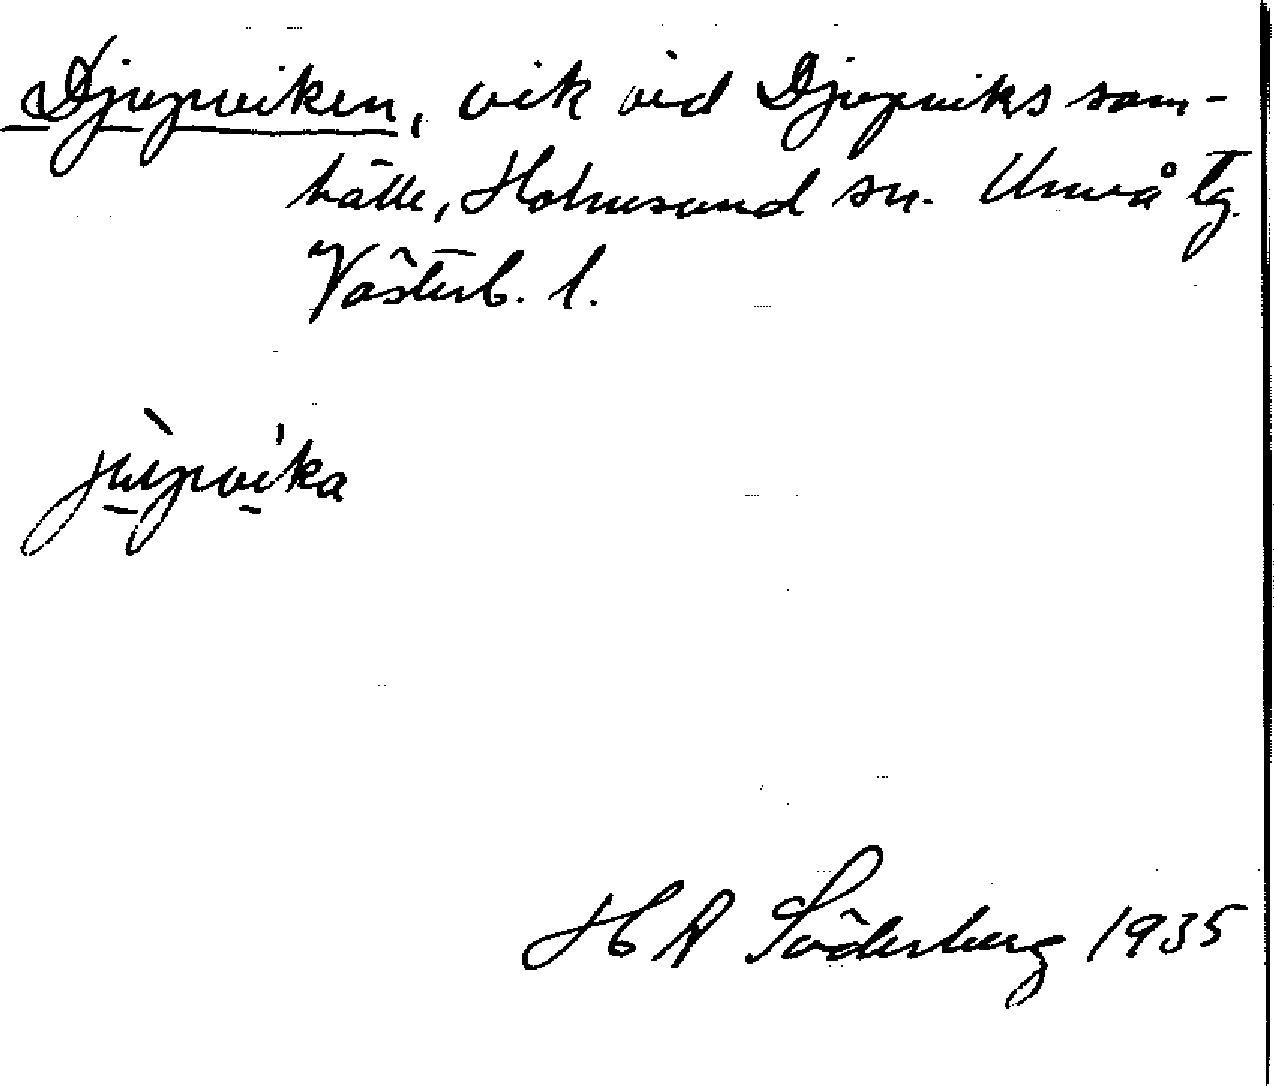 Djupviken, vik vid Djupviks sam-
hälle, Holmsund sn. Umeå tg.
Västerb. l.
jùpvíka
H A Söderberg 1935